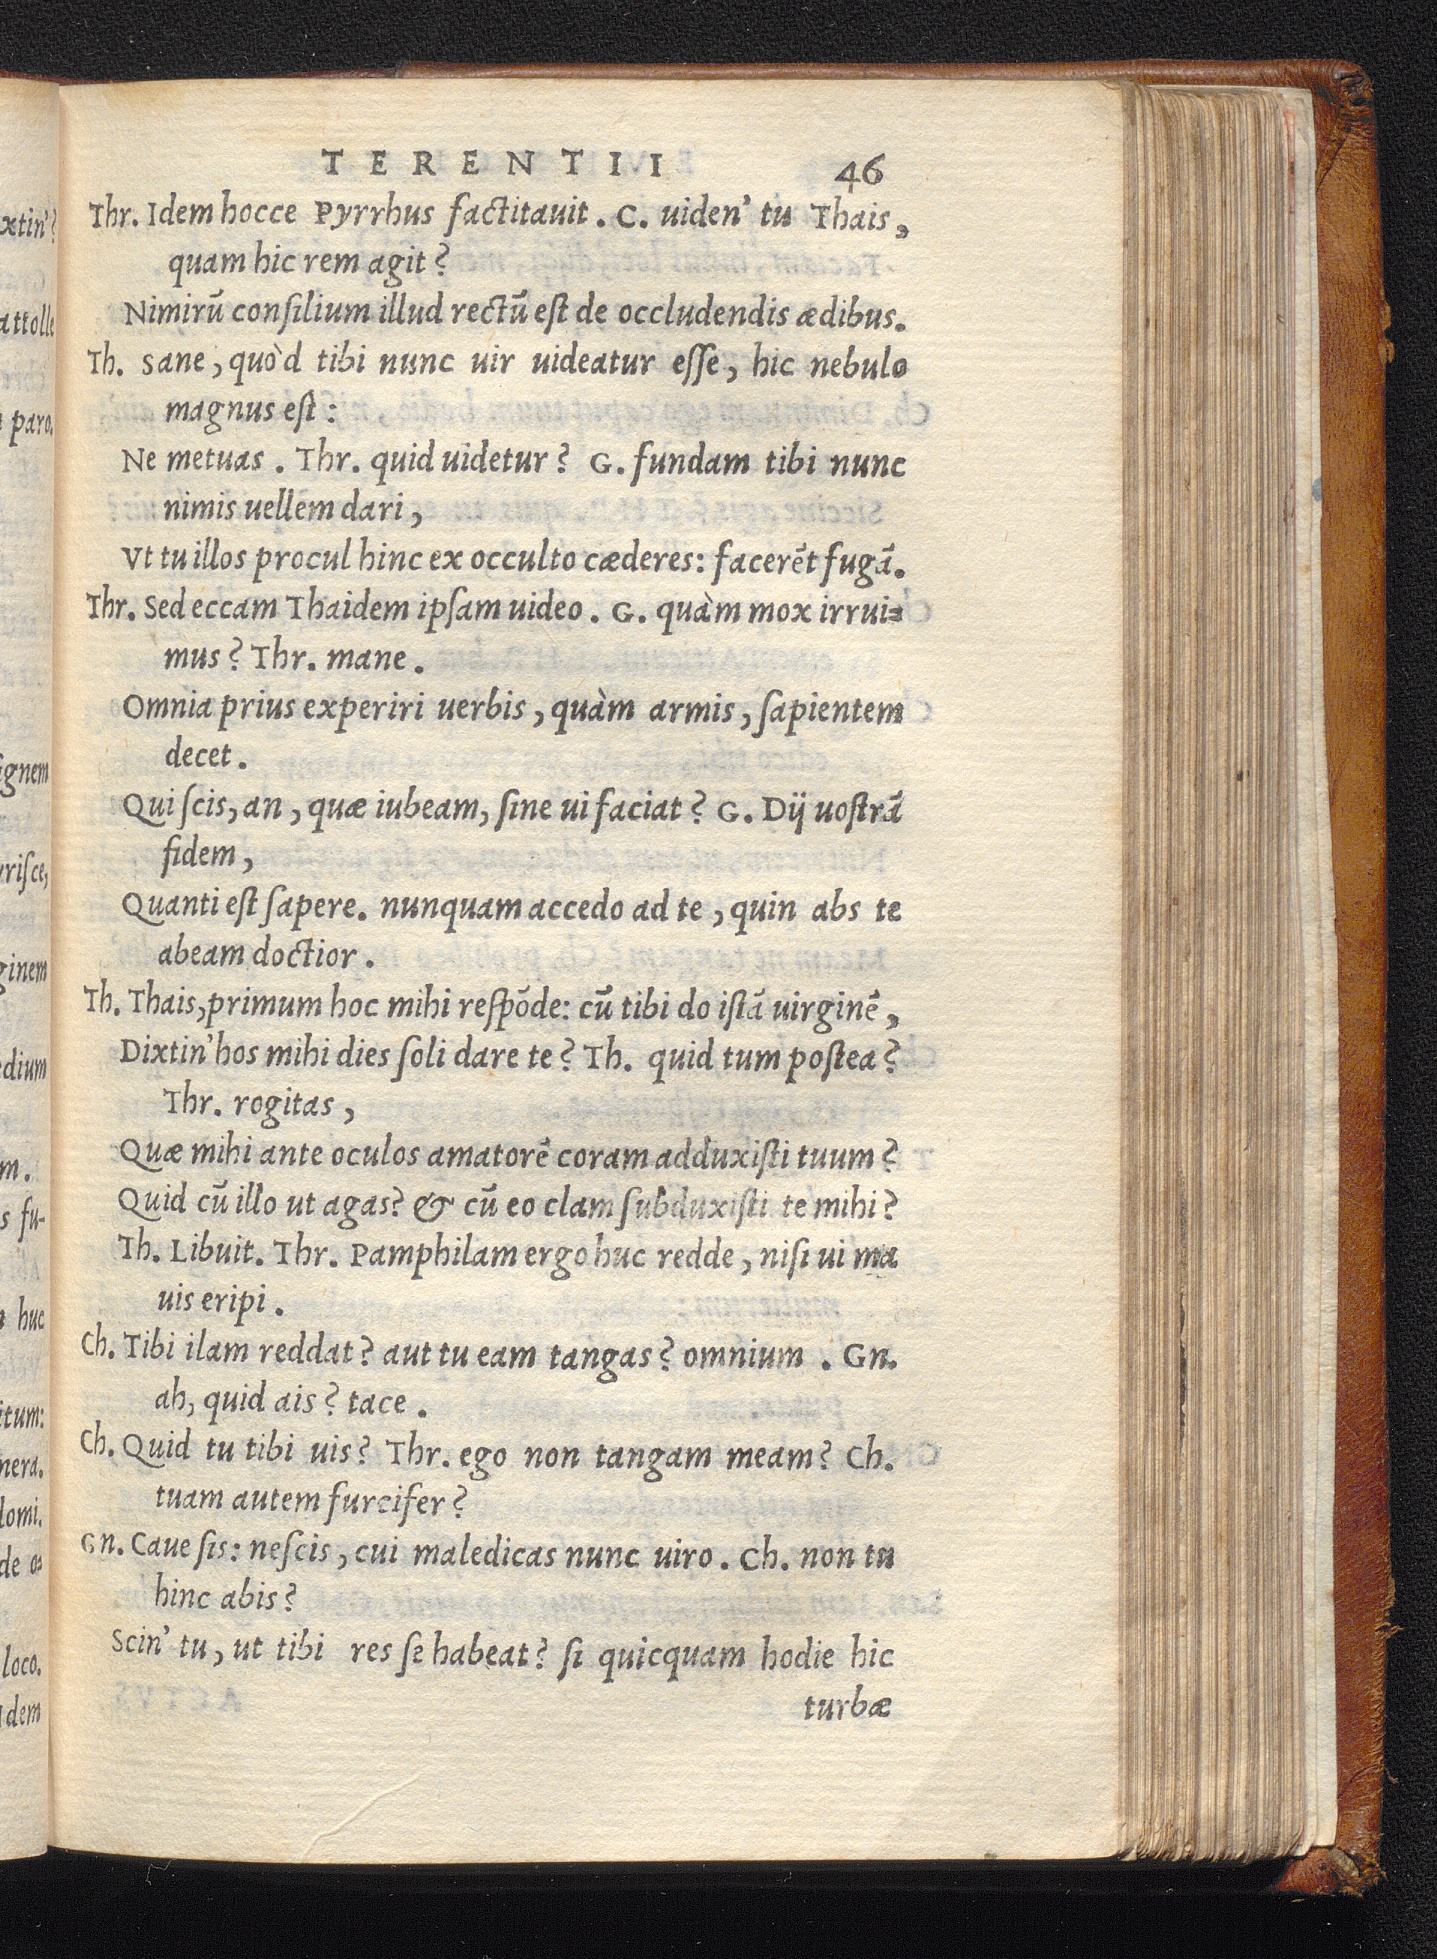 TERENTII 46
Thr. Idem hocce Pyrrhus factitauit. C. uiden' tu Thais,
quam hic rem agit?
Nimirū consilium illud rectū est de occludendis ædibus.
Th. Sane, quòd tibi nunc uir uideatur esse, hic nebulo
magnus est:
Ne metuas. Thr. quid uidetur? G. fundam tibi nunc
nimis uellem dari,
Vt tu illos procul hinc ex occulto cæderes: facerēt fugā.
Thr. Sed eccam Thaidem ipsam uideo. G. quàm mox irrui=
mus? Thr. mane.
Omnia prius experiri uerbis, quàm armis, sapientem
decet.
Qui scis, an, quæ iubeam, sine ui faciat? G. Dij uostrā
fidem,
Quanti est sapere. nunquam accedo ad te, quin abs te
abeam doctior.
Th. Thais, primum hoc mihi respōde: cū tibi do istā uirginē,
Dixtin' hos mihi dies soli dare te? Th. quid tum postea?
Thr. rogitas,
Quæ mihi ante oculos amatorē coram adduxisti tuum?
Quid cū illo ut agas? & cū eo clam subduxisti te mihi?
Th. Libuit. Thr. Pamphilam ergo huc redde, nisi ui ma
uis eripi.
Ch. Tibi ilam reddat? aut tu eam tangas? omnium. Gn.
ah, quid ais? tace.
Ch. Quid tu tibi uis? Thr. ego non tangam meam? Ch.
tuam autem furcifer?
Gn. Caue sis: nescis, cui maledicas nunc uiro. Ch. non tu
hinc abis?
Scin' tu, ut tibi res se habeat? si quicquam hodie hic
turbæ
xtin'?
attolle
paro.
ignem
risce,
ginem
edium
m.
s fu-
huc
itum:
nera.
domi.
de
loco.
dem